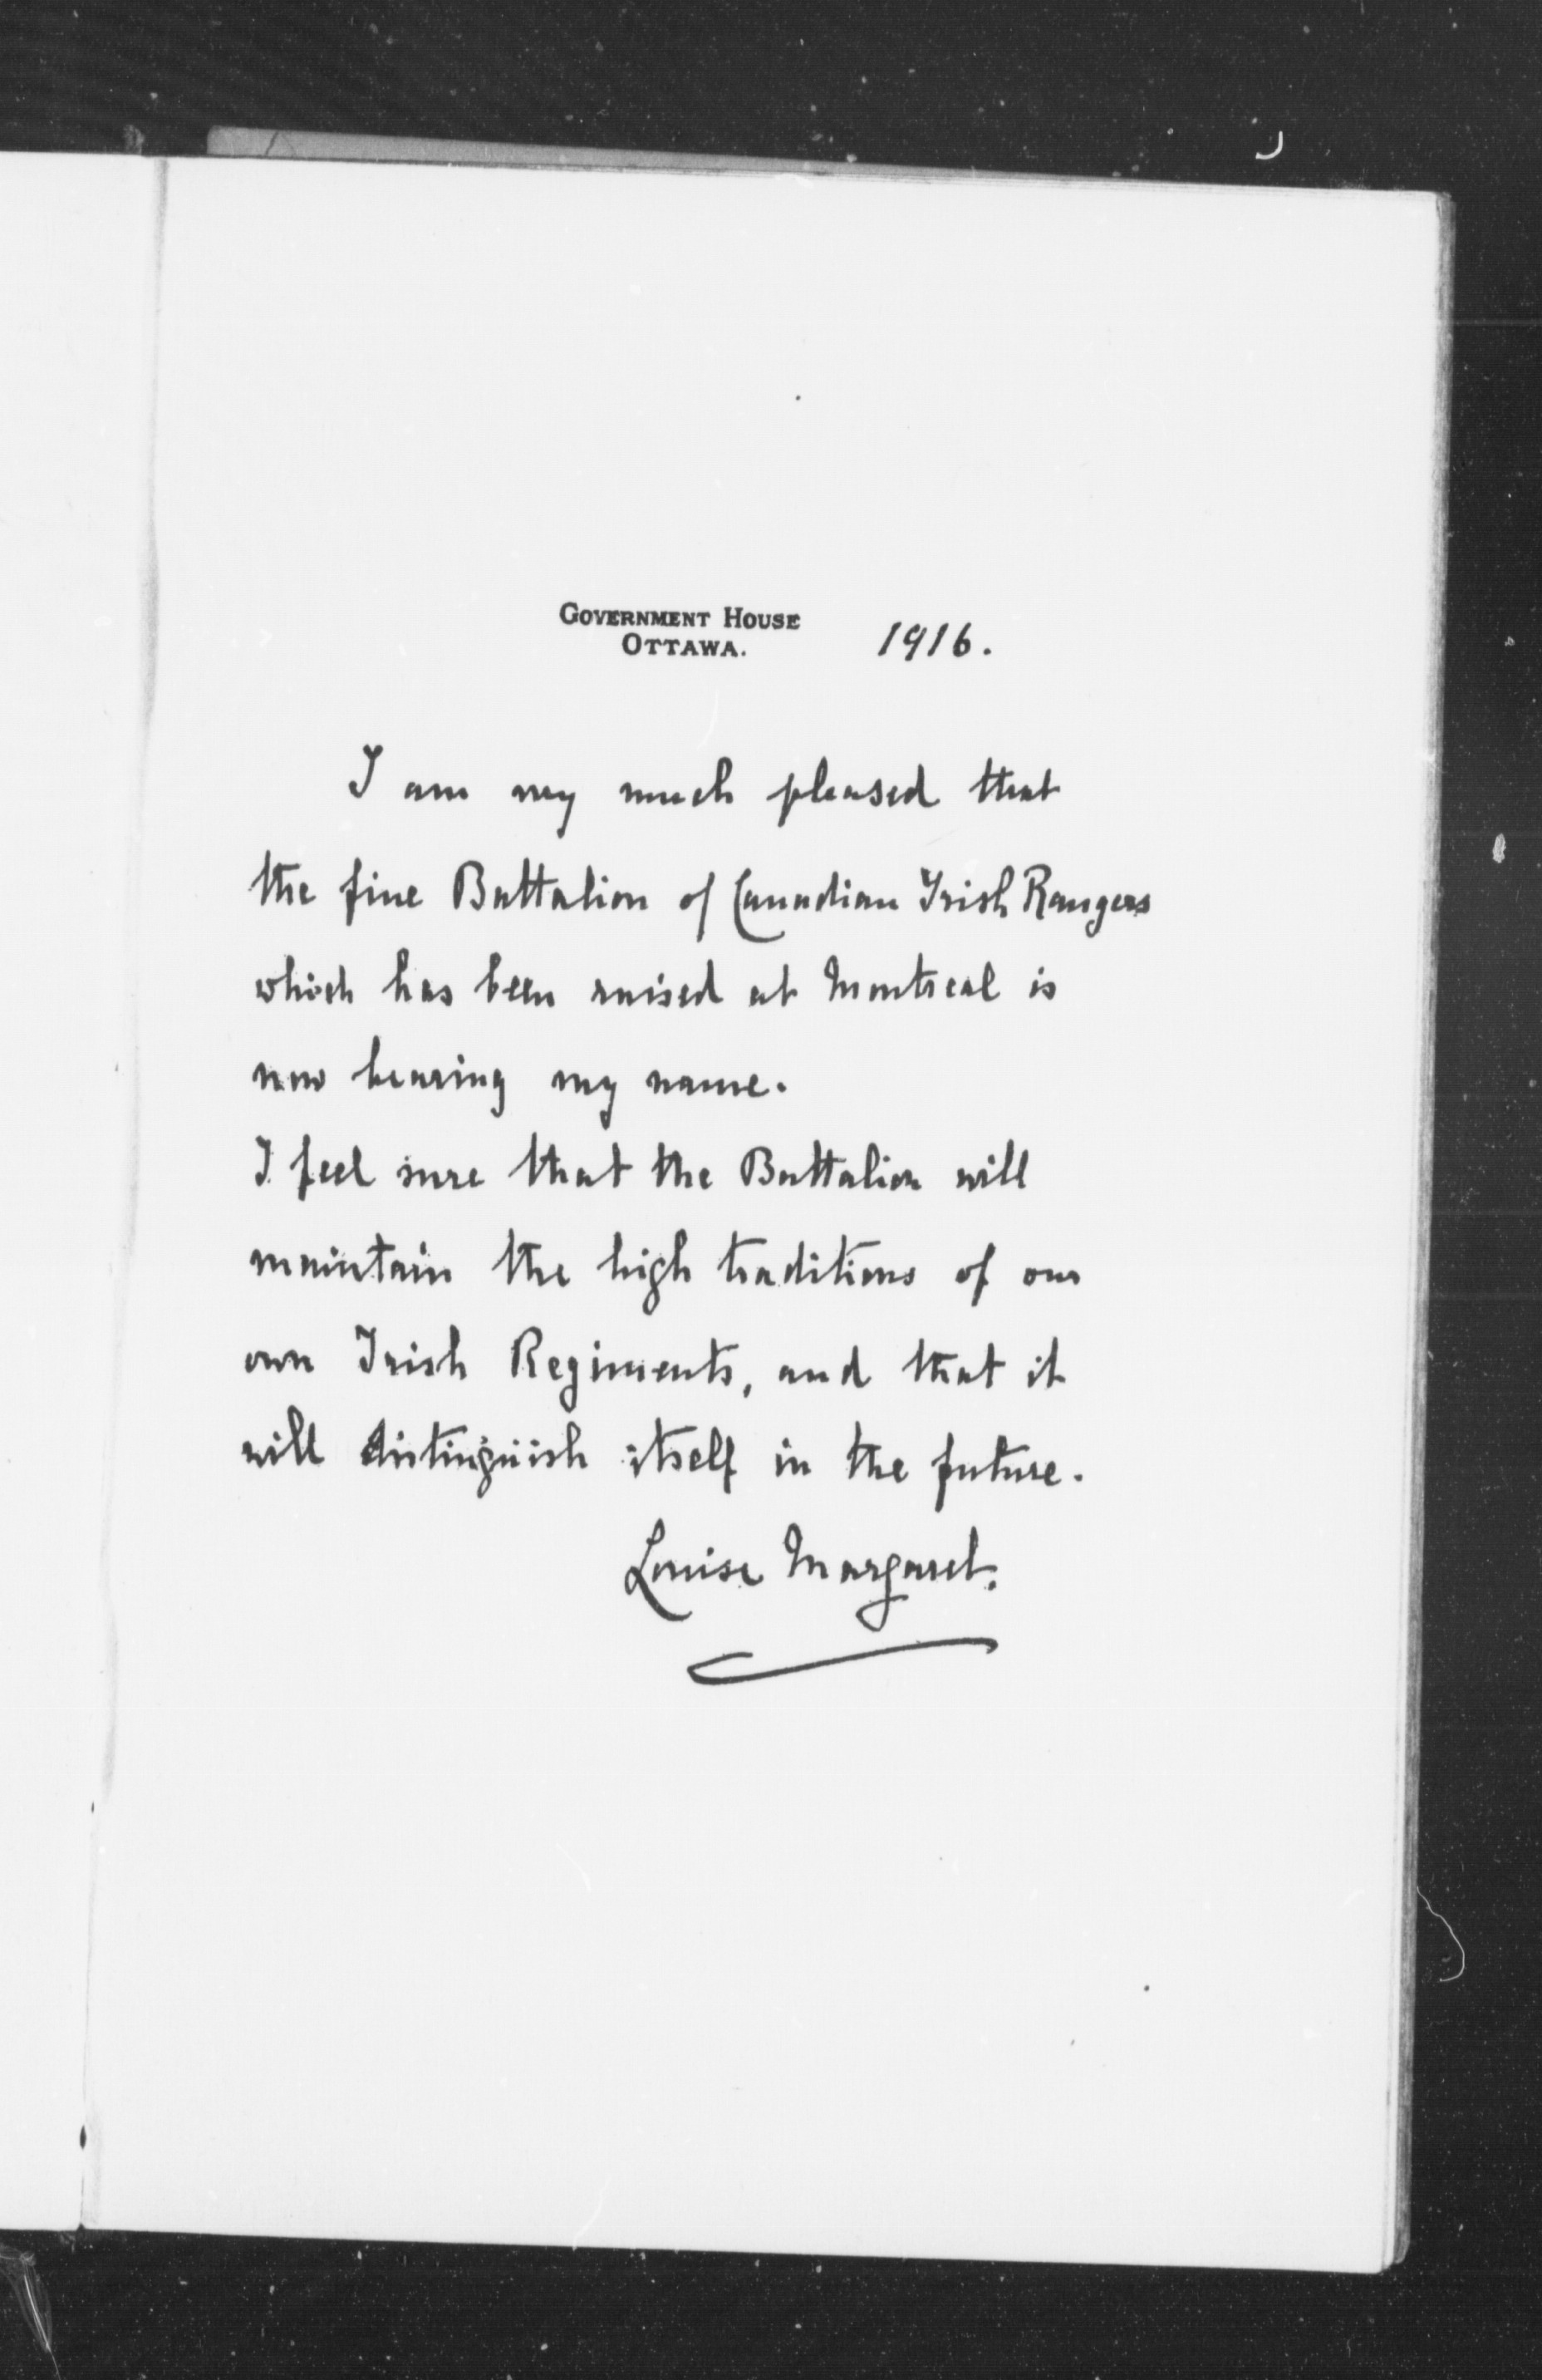 GOVERNMENT HOUSE
OTTAWA.
1916.
I am very much pleased that
the fine Battalion of Canadian Irish Rangers
which has been raised at Montreal is
now bearing my name.
I feel sure that the Battalion will
maintain the high traditions of our
own Irish Regiments, and that it
will distinguish itself in the future.
Louise Margaret.